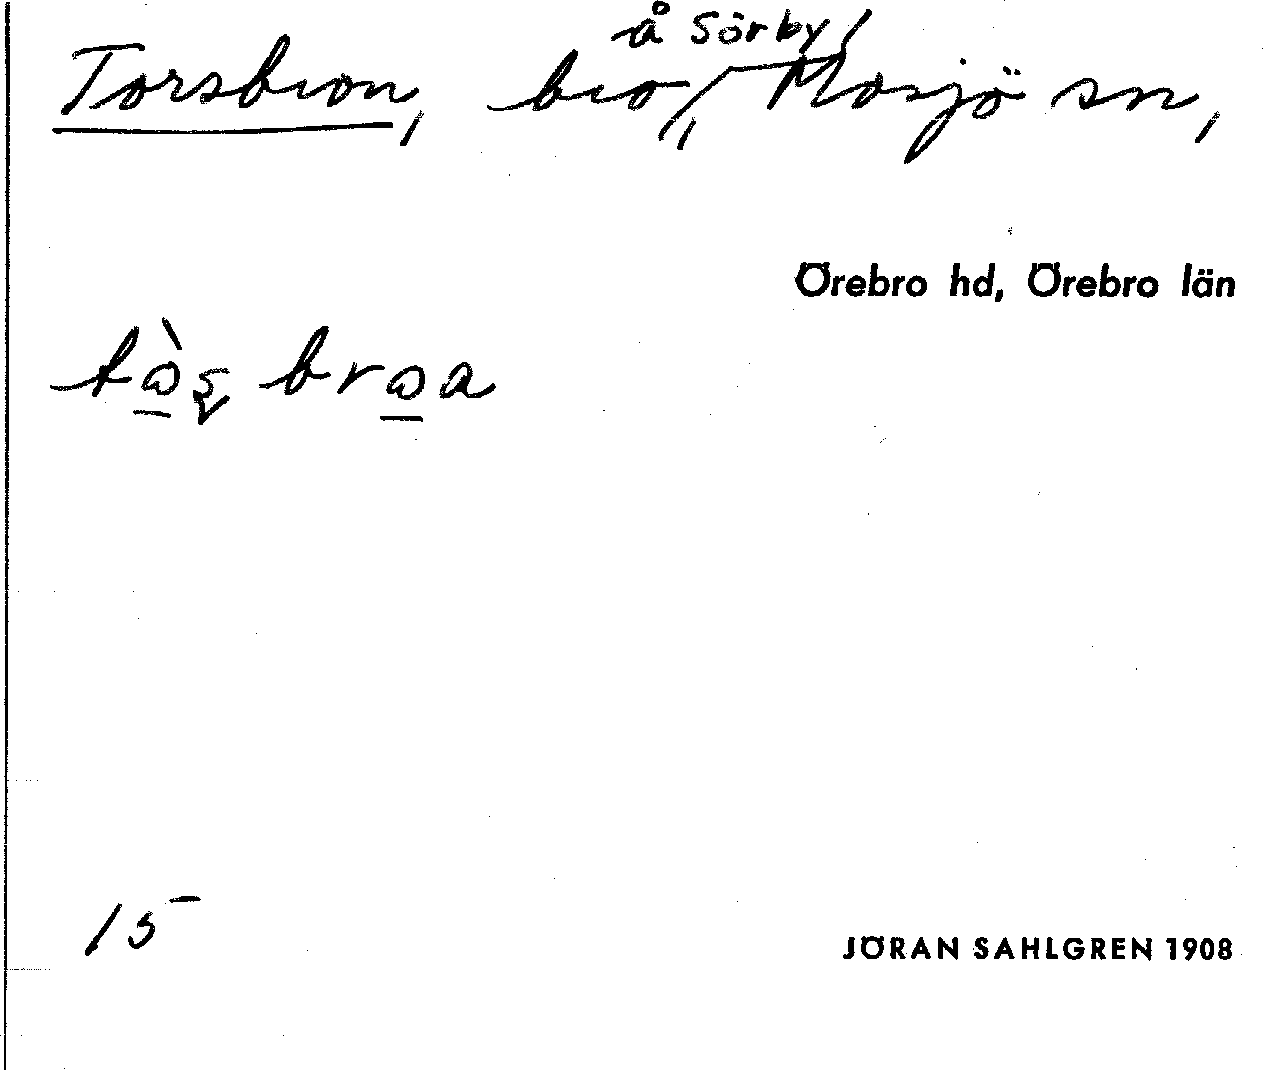 Torsbron, bro, å Sörby, Mosjö sn,
Örebro hd, Örebro län
tò̱ʂ bro̱a
15
JÖRAN SAHLGREN 1908